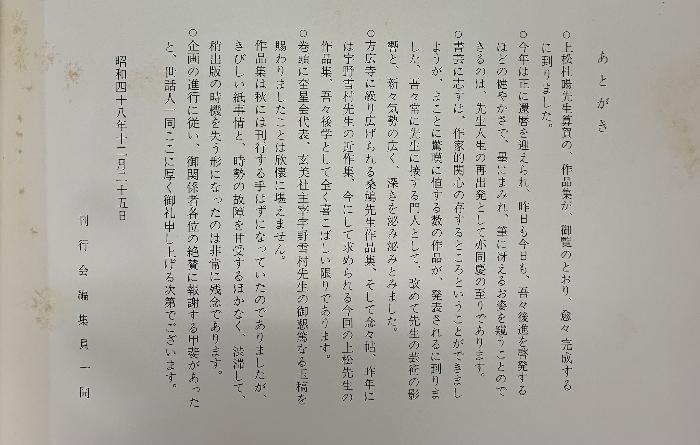 あとがき
○上松桂暘先生算賀の、作品集が、御覧のとおり、愈々完成する
に到りました。
○今年は正に還暦を迎えられ、昨日も今日も、吾々後進を啓発する
ほどの健やかさで、墨にまみれ、筆に冴えるお姿を窺うことので
きるのは、先生人生の再出発として亦同慶の至りであります。
○書芸に志すは、作家的関心の存するところということができまし
ようが、まことに驚嘆に値する数の作品が、発表されるに到りま
した。吾々常に先生に接する門人として、改めて先生の芸術の影
響と、新々気勢の広く、深さを泌み泌みとみました。
○方広寺に繰り広げられる桑鳩先生作品集、そして念々帖、昨年に
は宇野雪村先生の近作集、今にして求められる今回の上松先生の
作品集、吾々後学として全く喜こばしい限りであります。
○巻頭に奎星会代表、玄美社主宰宇野雪村先生の御懇篤なる玉稿を
賜わりましたことは欣懐に堪えません。
作品集は秋には刊行する手はずになっていたのでありましたが、
きびしい紙事情と、時勢の故障を甘受するほかなく、渋滞して、
稍出版の時機を失う形になったのは非常に残念であります。
○企画の進行に従い、御関係者各位の絶賛に報謝する甲斐があった
と、世話人一同ここに厚く御礼申し上げる次第でございます。
昭和四十八年十二月二十五日
刊行会編集員一同